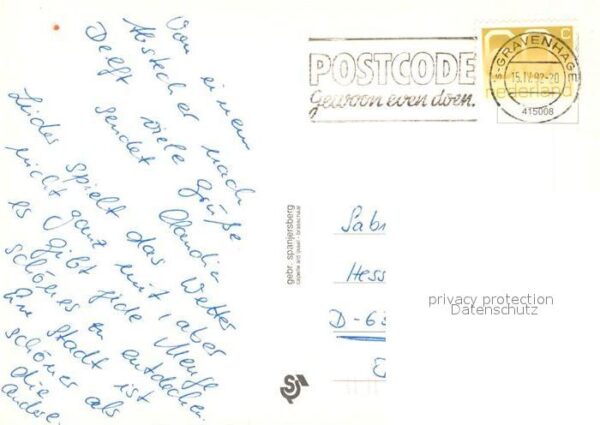 Von einem
Abstecher nach
Delft viele Grüße
sendet Claudia
Leider spielt das Wetter
nicht ganz mit, aber
es gibt jede Menge
schönes zu entdecken.
Eine Stadt ist
schöner als
die
andere.
POSTCODE
Gewoon even doen.
'S-GRAVENHAGE
15.IV.82-20
nederland
c
415008
gebr. spanjersberg
capelle a/d ijssel - brasschaat
Sabr
Hess
D-63
privacy protection
Datenschutz